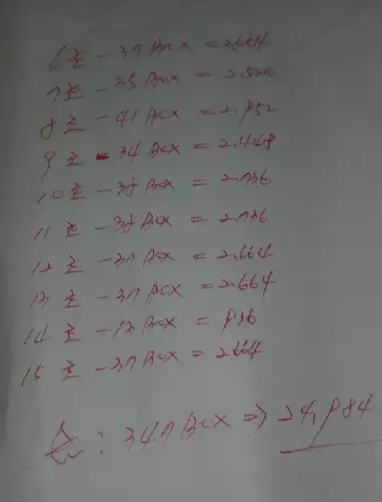 6조 - 37 Box = 2.664
7조 - 35 Box = 2.520
8조 - 41 Box = 2.952
9조 - 34 Box = 2.448
10조 - 38 Box = 2.736
11조 - 38 Box = 2.736
12조 - 37 Box = 2.664
13조 - 37 Box = 2.664
14조 - 13 Box = 936
15조 - 37 Box = 2664
: 347 Box => 24,984